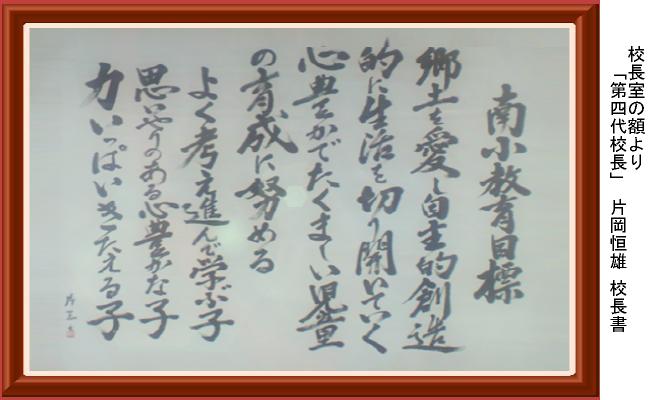 校長室の額より
「第四代校長」　片岡恒雄　校長書
南小教育目標
郷土を愛し自主的創造
的に生活を切り開いていく
心豊かでたくましい児童
の育成に努める
よく考え進んで学ぶ子
思いやりのある心豊かな子
力いっぱいきたえる子